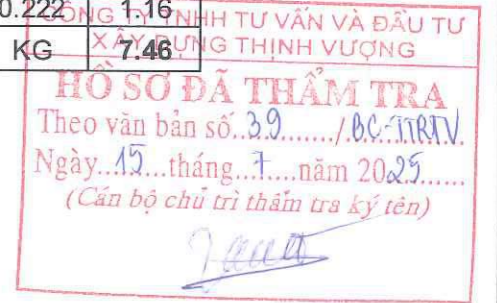 0.222 1.16
KG 7.46
CÔNG TY TNHH TƯ VẤN VÀ ĐẦU TƯ
XÂY DỰNG THỊNH VƯỢNG
HỒ SƠ ĐÃ THẨM TRA
Theo văn bản số..39......./.BC-TTRTV.
Ngày...15...tháng...7....năm 2025......
(Cán bộ chủ trì thẩm tra ký tên)